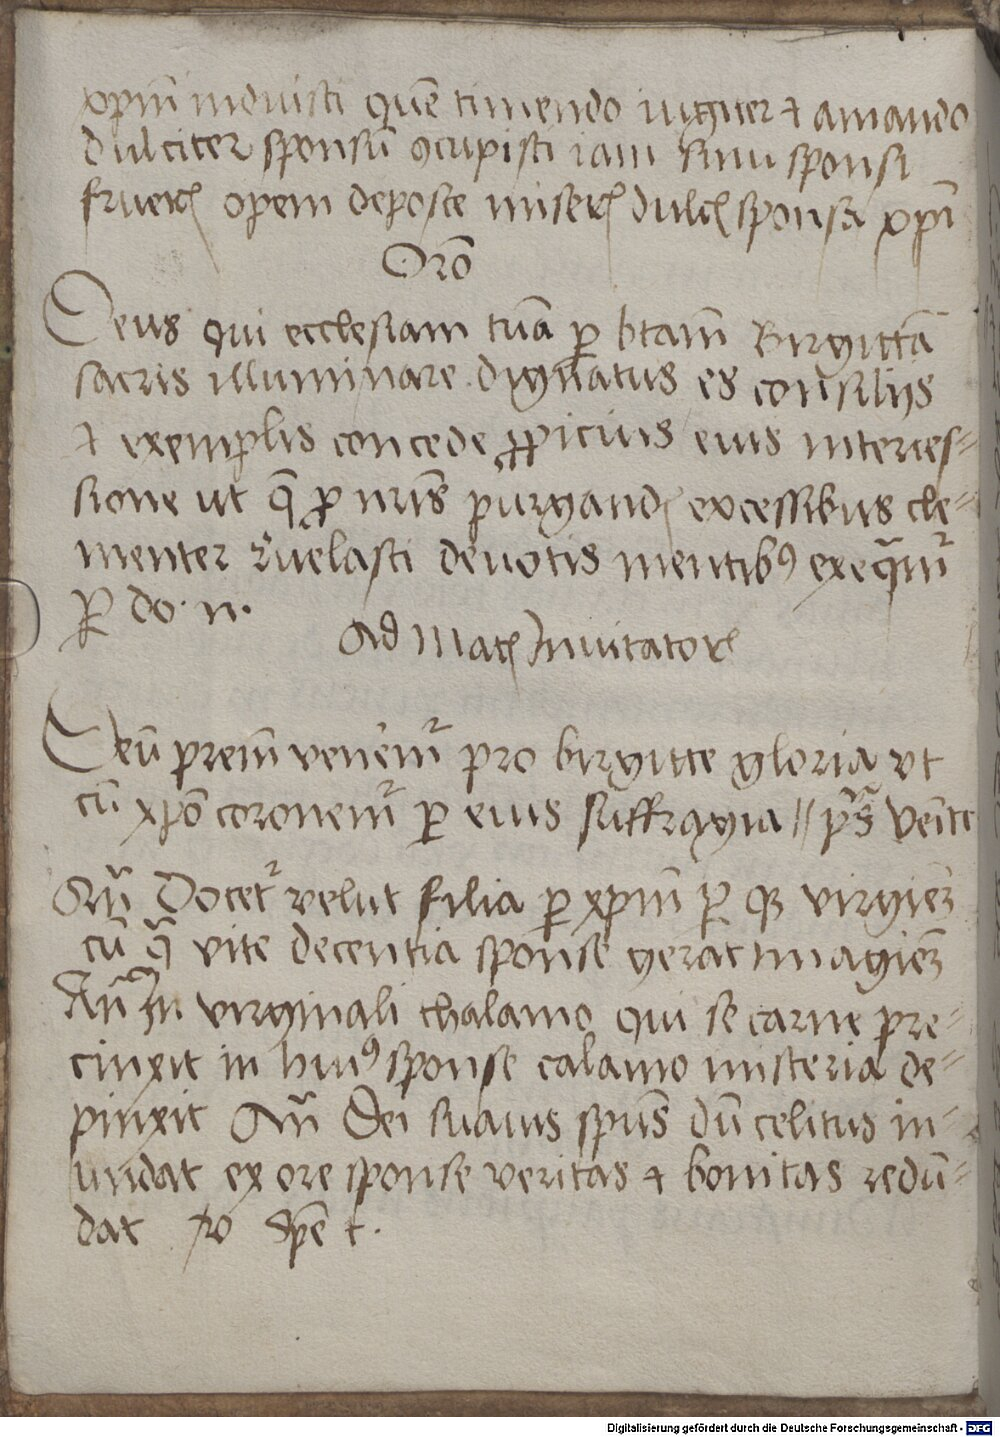 xpm̄ induisti quē timendo iugiter ⁊ amando
dulciter sponsū ꝯcupisti iam sinu sponsi
frueris opem deposce miseris dulcis sponsa xpī
Orō
Deus qui ecclesiam tuā ꝑ btam̄ Birgittā
sacris illuminare dignatus es consilijs
⁊ exemplis concede ꝓpicius eius interces-
sione ut q̄ ꝓ nr̄is purgandis excessibus cle-
menter r̄uelasti deuotis mentibꝫ exequam̄
ꝑ do. n.
Ad Mat Inuitator
Deū prem̄ venem̄ pro birgitte gloria vt
cū xpō coronem̄ ꝑ eius suffragia // ps̄ Venite
Añ Docet velut filia ꝑ xpm̄ ꝑ qꝫ virginē
cū q̄ vite decentia sponse gerat imaginē
Añ In virginali thalamo qui se carne pre-
cinxit in huiꝰ sponse calamo misteria de-
pinxit Añ Dei suauis spūs dū celitus in-
undat ex ore sponse veritas ⁊ bonitas redū-
dat
Digitalisierung gefördert durch die Deutsche Forschungsgemeinschaft - DFG